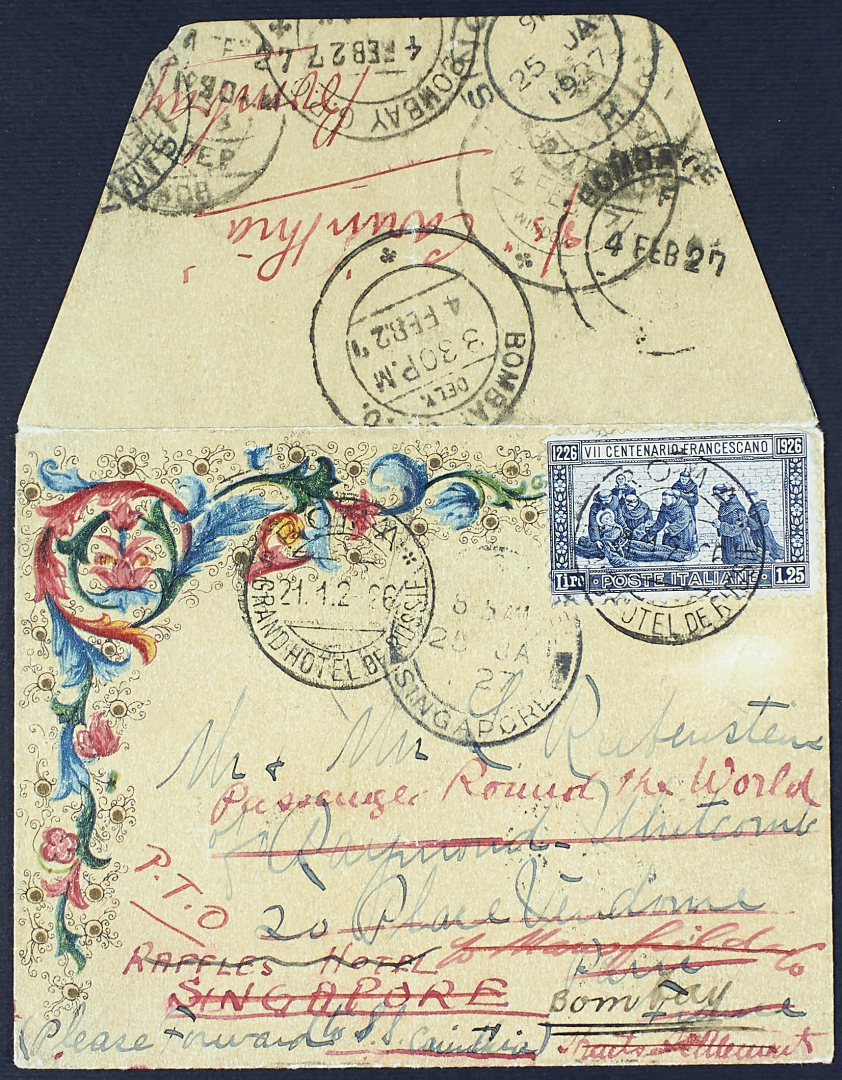 25 JA
1927
BOMBAY G.P.O.
4 FEB 27
DEP
Bombay
s/s "Carinthia"
BOMBAY
4 FEB 27
BOMBAY G.P.O.
DELY.
3 30 P.M
4 FEB 27
1226 VII CENTENARIO FRANCESCANO 1926
Lire · POSTE ITALIANE · 1.25
ROMA
HOTEL DE RUSSIE
ROMA
21.1.2
GRAND HOTEL DE RUSSIE
25 JA
27
SINGAPORE
Mr & Mrs L Rubenstein
Passenger Round the World
c/o Raymond-Whitcomb
20 Place Vendome
P.T.O
RAFFLES HOTEL
Paris
SINGAPORE
Bombay
France
(Please Forward to S.S. Carinthia)
Straits Settlements